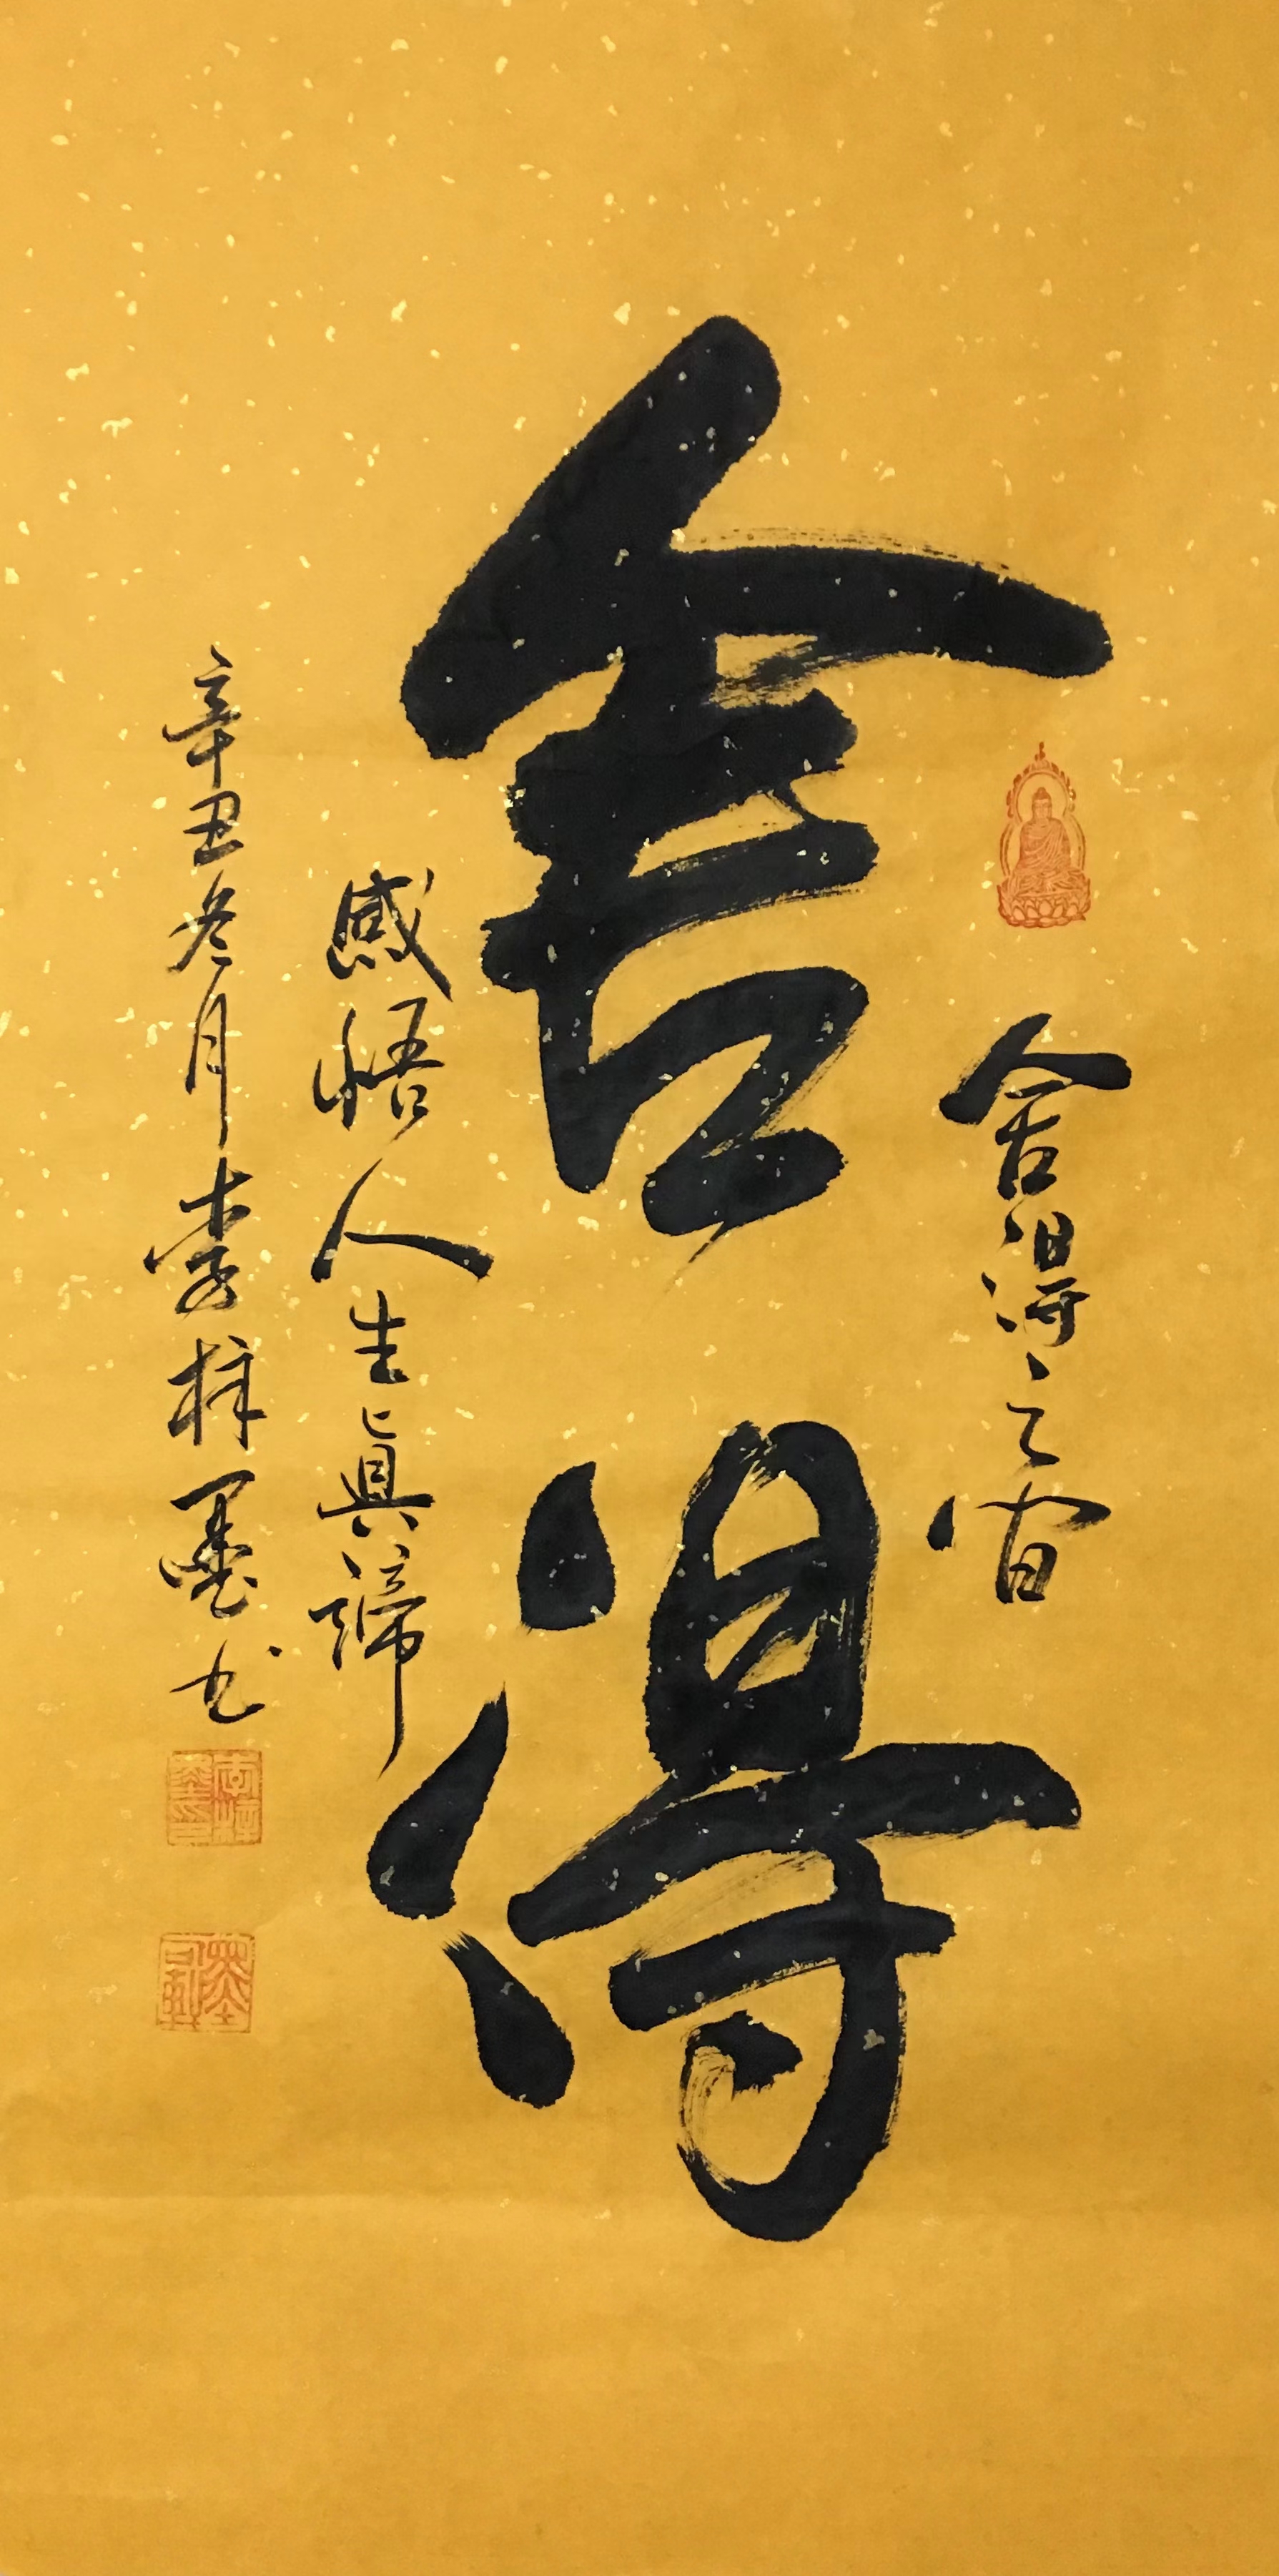 舍得之间
舍得
感悟人生真谛
辛丑冬月李梓墨书